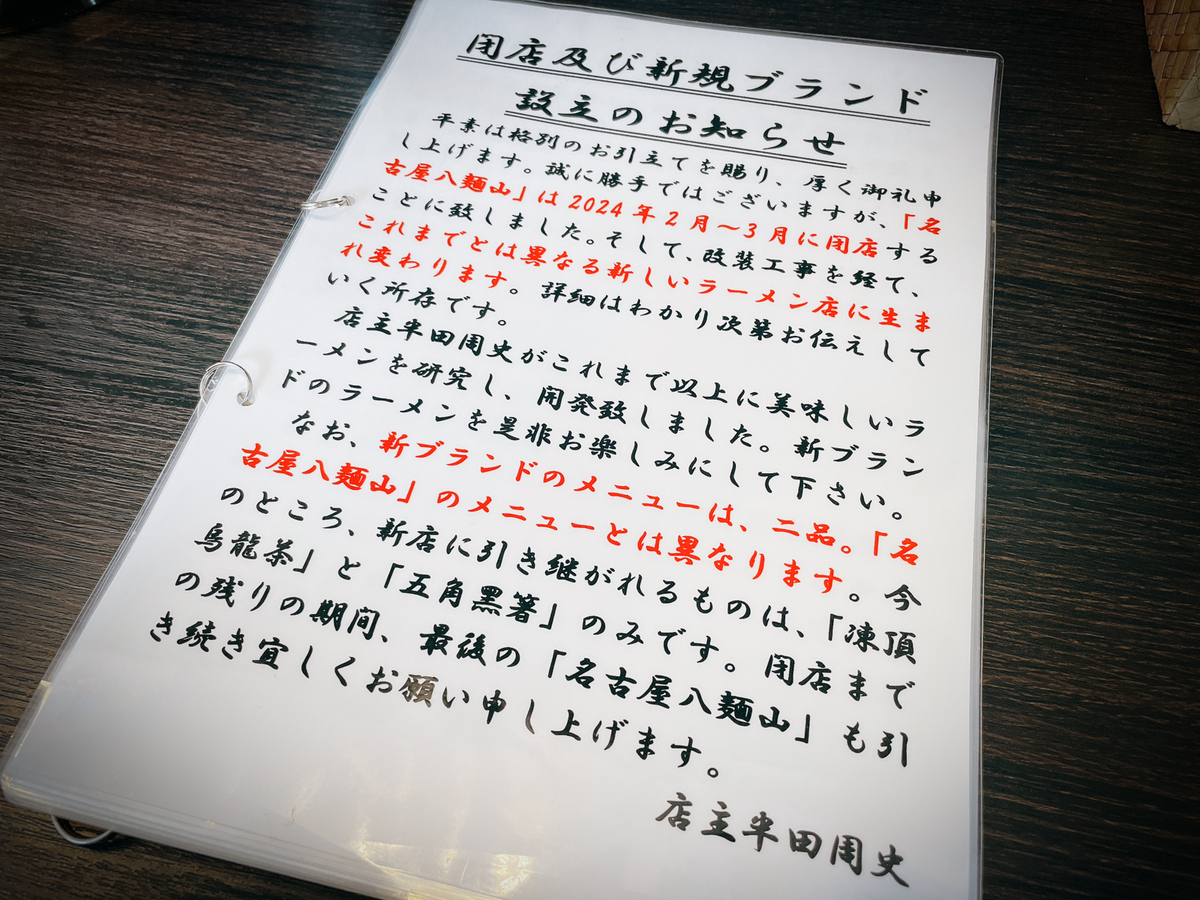 閉店及び新規ブランド
設立のお知らせ
平素は格別のお引立てを賜り、厚く御礼申
し上げます。誠に勝手ではございますが、「名
古屋八麺山」は2024年2月〜3月に閉店する
ことに致しました。そして、改装工事を経て、
これまでとは異なる新しいラーメン店に生ま
れ変わります。詳細はわかり次第お伝えして
いく所存です。
店主半田周史がこれまで以上に美味しいラ
ーメンを研究し、開発致しました。新ブラン
ドのラーメンを是非お楽しみにして下さい。
なお、新ブランドのメニューは、二品。「名
古屋八麺山」のメニューとは異なります。今
のところ、新店に引き継がれるものは、「凍頂
烏龍茶」と「五角黑箸」のみです。閉店まで
の残りの期間、最後の「名古屋八麺山」も引
き続き宜しくお願い申し上げます。
店主半田周史